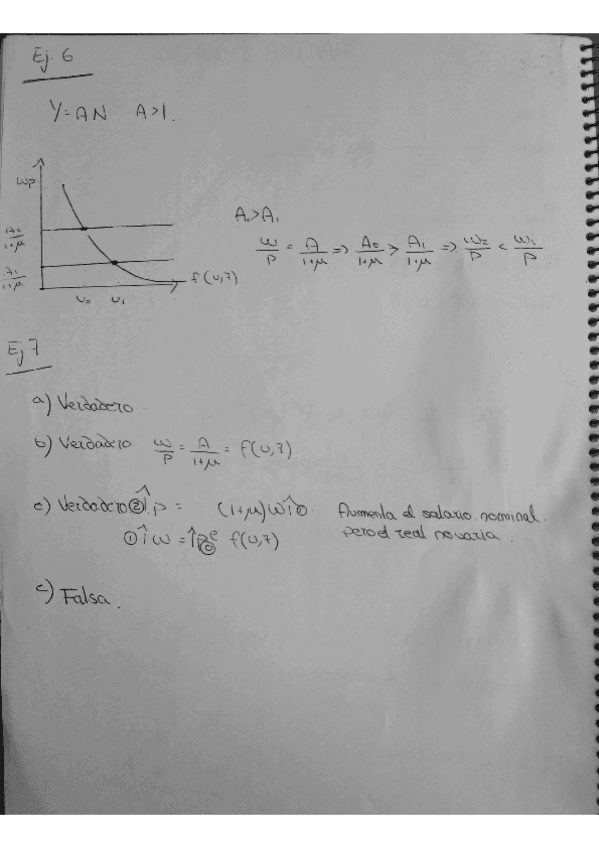 Ej. 6
Y = AN   A>1.
W/P
A₀/1+μ
A₁/1+μ
f(u,z)
u₀   u₁
A₀>A₁
W/P = A/1+μ ⇒ A₀/1+μ > A₁/1+μ ⇒ W₂/P < W₁/P
Ej 7
a) Verdadero.
b) Verdadero   W/P = A/1+μ = f(u,z)
c) Verdadero ② ↑P = (1+μ)W↑①. Aumenta el salario nominal.
① ↑W = ↑Pᵉ ⓪ f(u,z)   pero el real no varía.
c) Falsa.